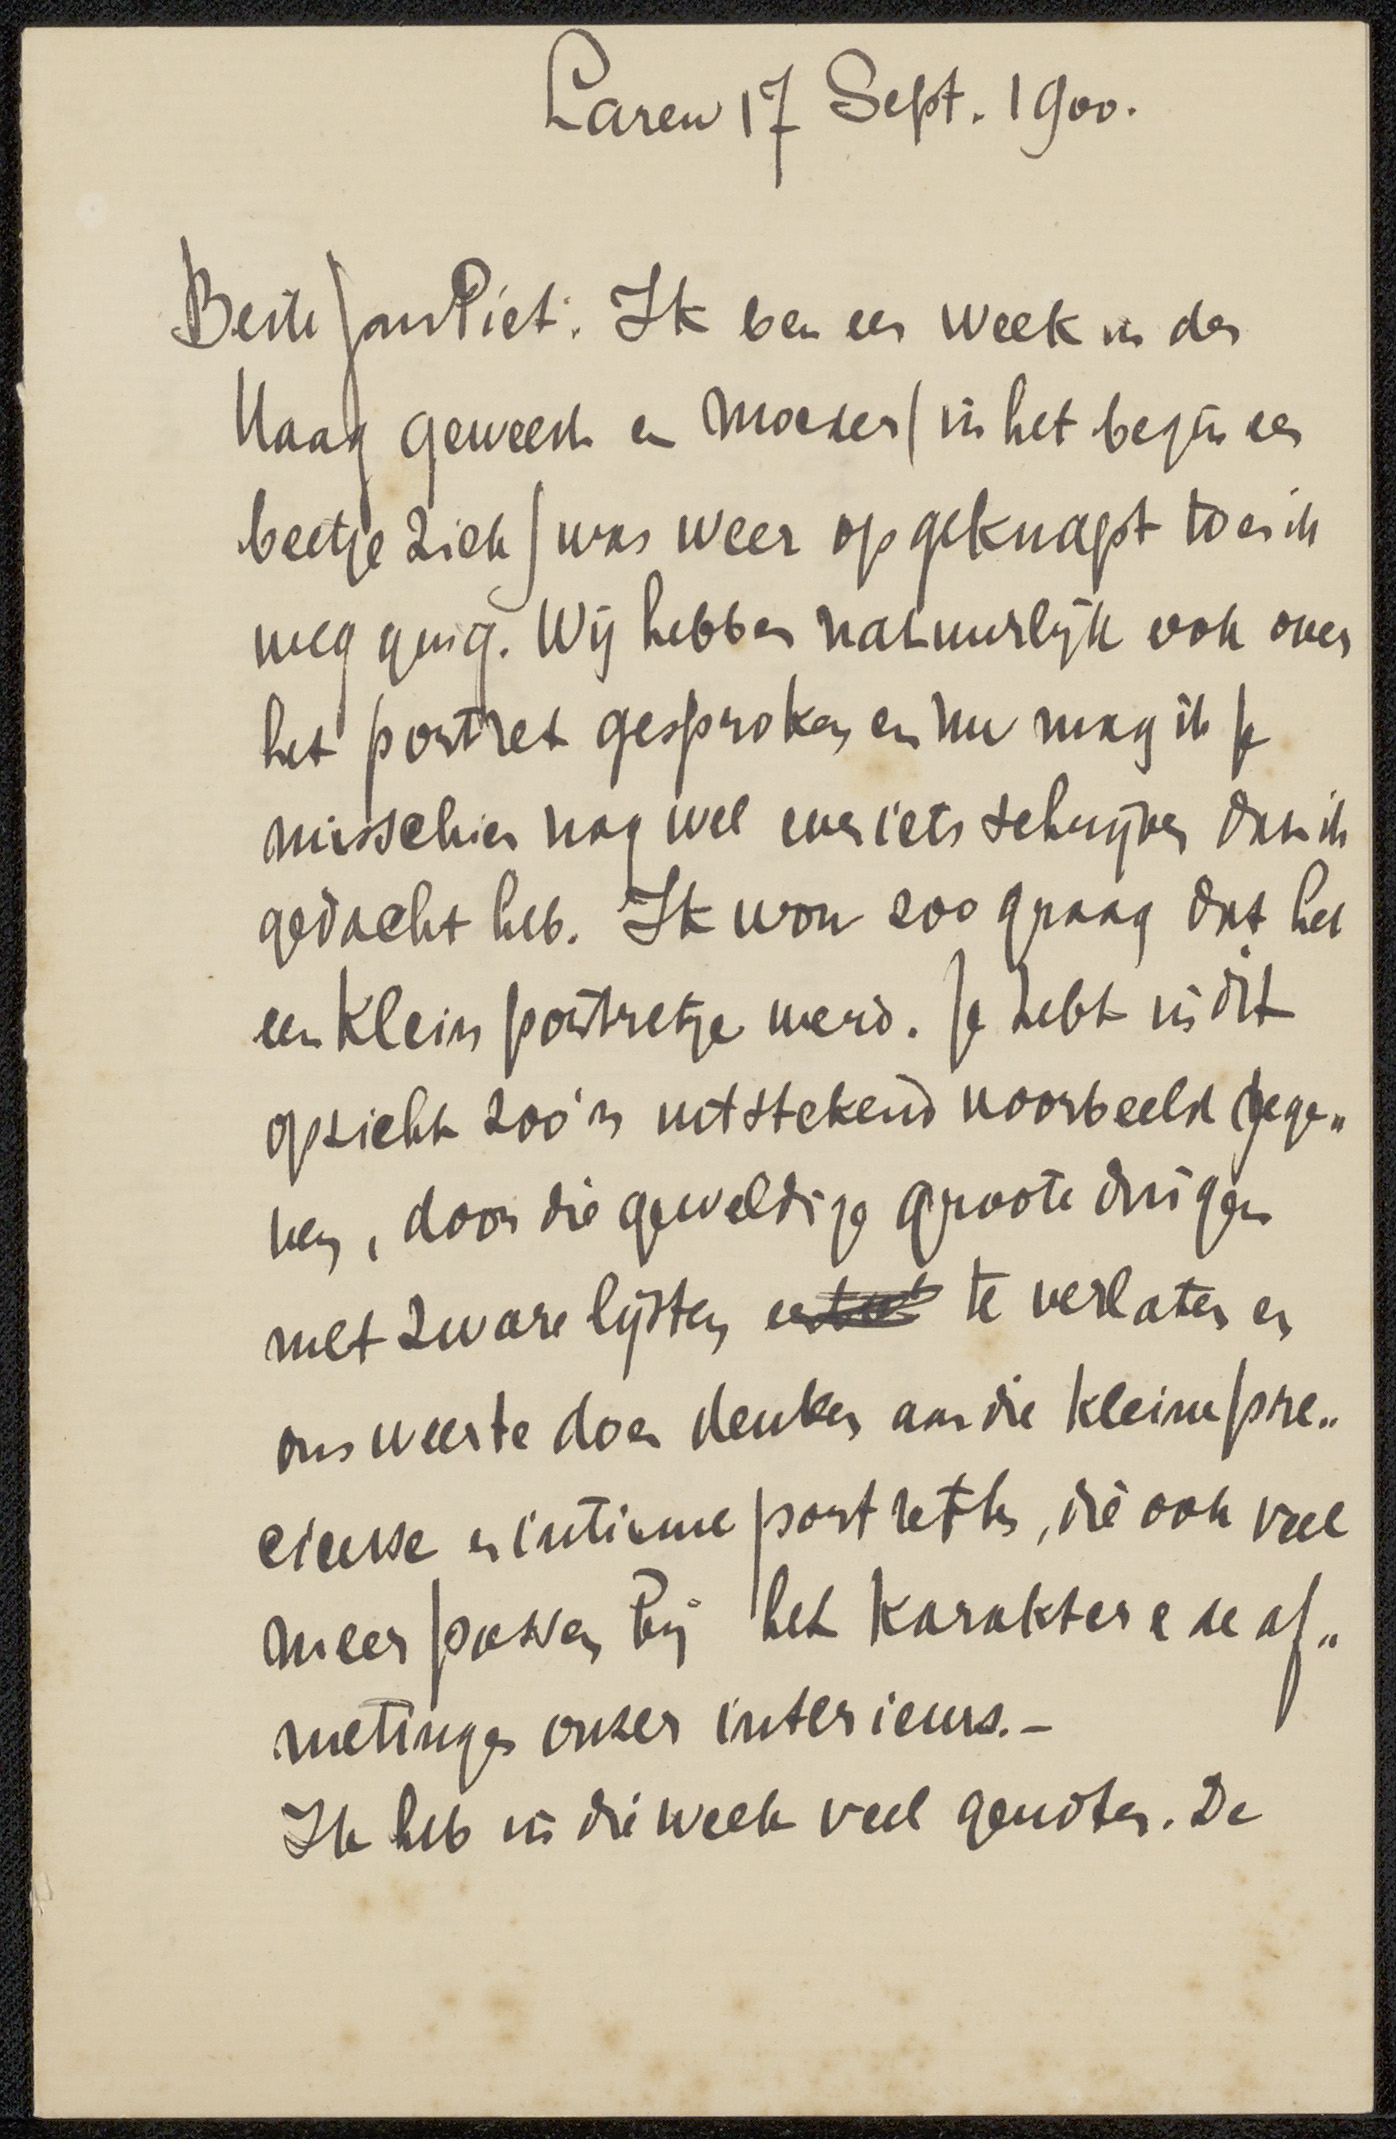 Laren 17 Sept. 1900.
Beste Jan Piet. Ik ben een week in den
Haag geweest en Moeder (in het begin een
beetje ziek) was weer opgeknapt toen ik
weg ging. Wij hebben natuurlijk ook over
het portret gesproken en nu mag ik je
misschien nog wel even iets schrijven dat ik
gedacht heb. Ik wou zoo graag dat het
een klein portretje werd. Je hebt in dit
opzicht zoo'n uitstekend voorbeeld gege„
ven, door die geweldige groote dingen
met zware lijsten te verlaten en
ons weer te doen denken aan die kleine pre„
cieuse en intieme portretten, die ook veel
meer passen bij het karakter e de af„
metingen onzer interieurs.-
Ik heb in die week veel genoten. De